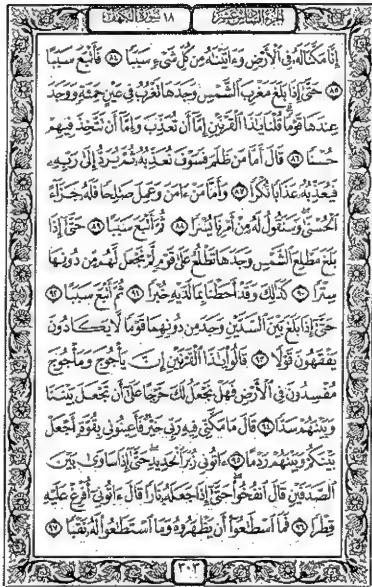 الجزء السادس عشر
١٨ سورة الكهف
إِنَّا مَكَّنَّا لَهُۥ فِى ٱلْأَرْضِ وَءَاتَيْنَٰهُ مِن كُلِّ شَىْءٍ سَبَبًا ٨٤ فَأَتْبَعَ سَبَبًا
٨٥ حَتَّىٰٓ إِذَا بَلَغَ مَغْرِبَ ٱلشَّمْسِ وَجَدَهَا تَغْرُبُ فِى عَيْنٍ حَمِئَةٍ وَوَجَدَ
عِندَهَا قَوْمًا قُلْنَا يَٰذَا ٱلْقَرْنَيْنِ إِمَّآ أَن تُعَذِّبَ وَإِمَّآ أَن تَتَّخِذَ فِيهِمْ
حُسْنًا ٨٦ قَالَ أَمَّا مَن ظَلَمَ فَسَوْفَ نُعَذِّبُهُۥ ثُمَّ يُرَدُّ إِلَىٰ رَبِّهِۦ
فَيُعَذِّبُهُۥ عَذَابًا نُّكْرًا ٨٧ وَأَمَّا مَنْ ءَامَنَ وَعَمِلَ صَٰلِحًا فَلَهُۥ جَزَآءً
ٱلْحُسْنَىٰ وَسَنَقُولُ لَهُۥ مِنْ أَمْرِنَا يُسْرًا ٨٨ ثُمَّ أَتْبَعَ سَبَبًا ٨٩ حَتَّىٰٓ إِذَا
بَلَغَ مَطْلِعَ ٱلشَّمْسِ وَجَدَهَا تَطْلُعُ عَلَىٰ قَوْمٍ لَّمْ نَجْعَل لَّهُم مِّن دُونِهَا
سِتْرًا ٩٠ كَذَٰلِكَ وَقَدْ أَحَطْنَا بِمَا لَدَيْهِ خُبْرًا ٩١ ثُمَّ أَتْبَعَ سَبَبًا ٩٢
حَتَّىٰٓ إِذَا بَلَغَ بَيْنَ ٱلسَّدَّيْنِ وَجَدَ مِن دُونِهِمَا قَوْمًا لَّا يَكَادُونَ
يَفْقَهُونَ قَوْلًا ٩٣ قَالُوا۟ يَٰذَا ٱلْقَرْنَيْنِ إِنَّ يَأْجُوجَ وَمَأْجُوجَ
مُفْسِدُونَ فِى ٱلْأَرْضِ فَهَلْ نَجْعَلُ لَكَ خَرْجًا عَلَىٰٓ أَن تَجْعَلَ بَيْنَنَا
وَبَيْنَهُمْ سَدًّا ٩٤ قَالَ مَا مَكَّنِّى فِيهِ رَبِّى خَيْرٌ فَأَعِينُونِى بِقُوَّةٍ أَجْعَلْ
بَيْنَكُمْ وَبَيْنَهُمْ رَدْمًا ٩٥ ءَاتُونِى زُبَرَ ٱلْحَدِيدِ حَتَّىٰٓ إِذَا سَاوَىٰ بَيْنَ
ٱلصَّدَفَيْنِ قَالَ ٱنفُخُوا۟ حَتَّىٰٓ إِذَا جَعَلَهُۥ نَارًا قَالَ ءَاتُونِىٓ أُفْرِغْ عَلَيْهِ
قِطْرًا ٩٦ فَمَا ٱسْطَٰعُوٓا۟ أَن يَظْهَرُوهُ وَمَا ٱسْتَطَٰعُوا۟ لَهُۥ نَقْبًا ٩٧
٣٠٣